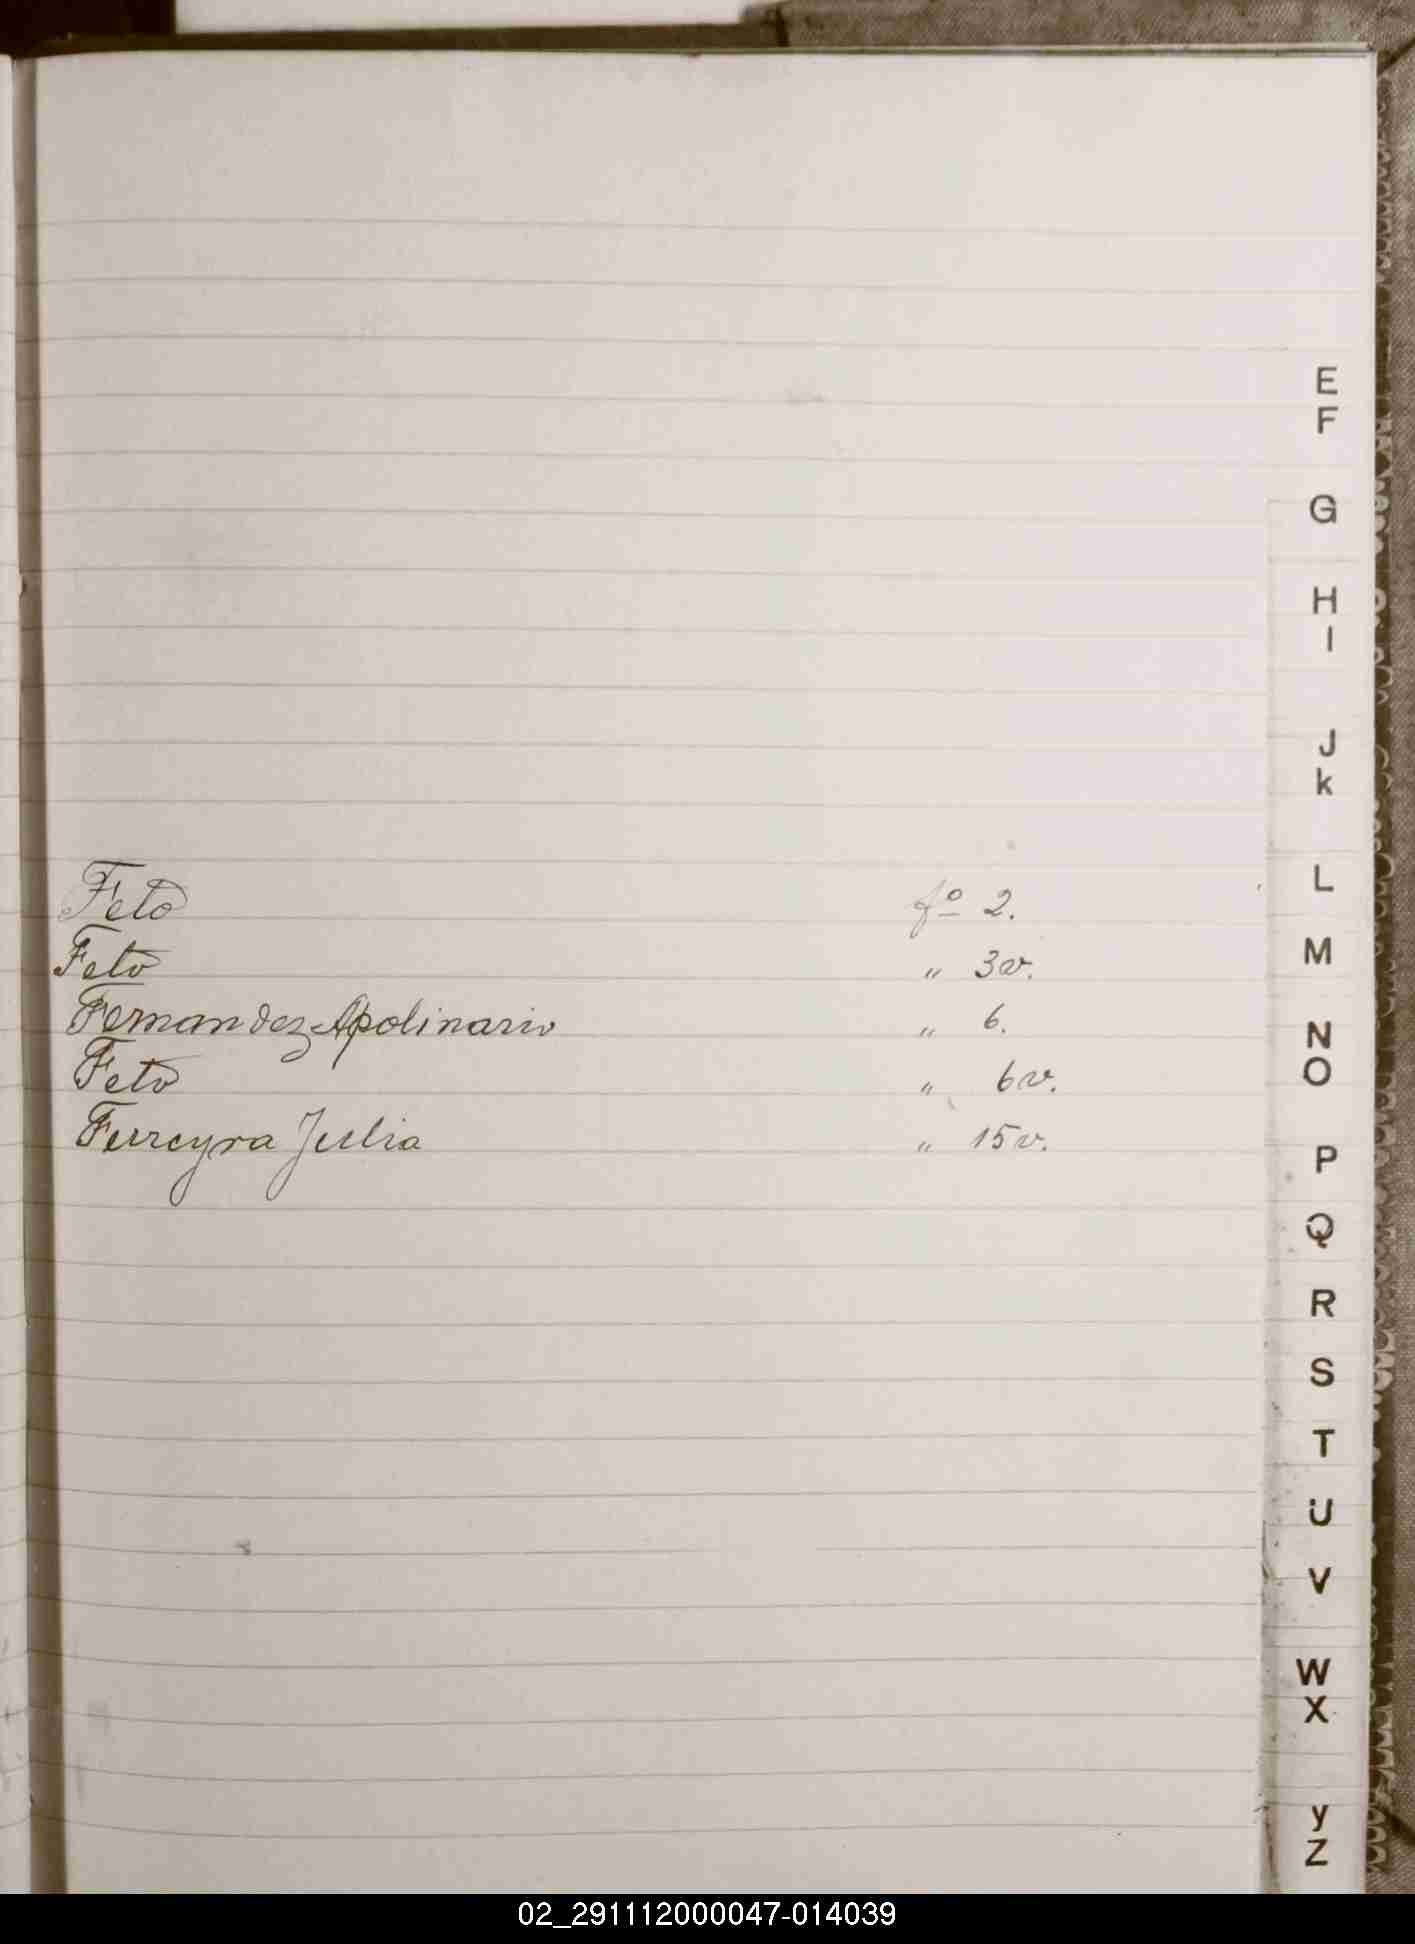 E
F
G
H
I
J
k
Feto fº 2.
L
Feto " 3v.
M
Fernandez Apolinario " 6.
N
O
Feto " 6v.
Ferreyra Julia " 15v.
P
Q
R
S
T
U
V
W
X
y
Z
02_291112000047-014039